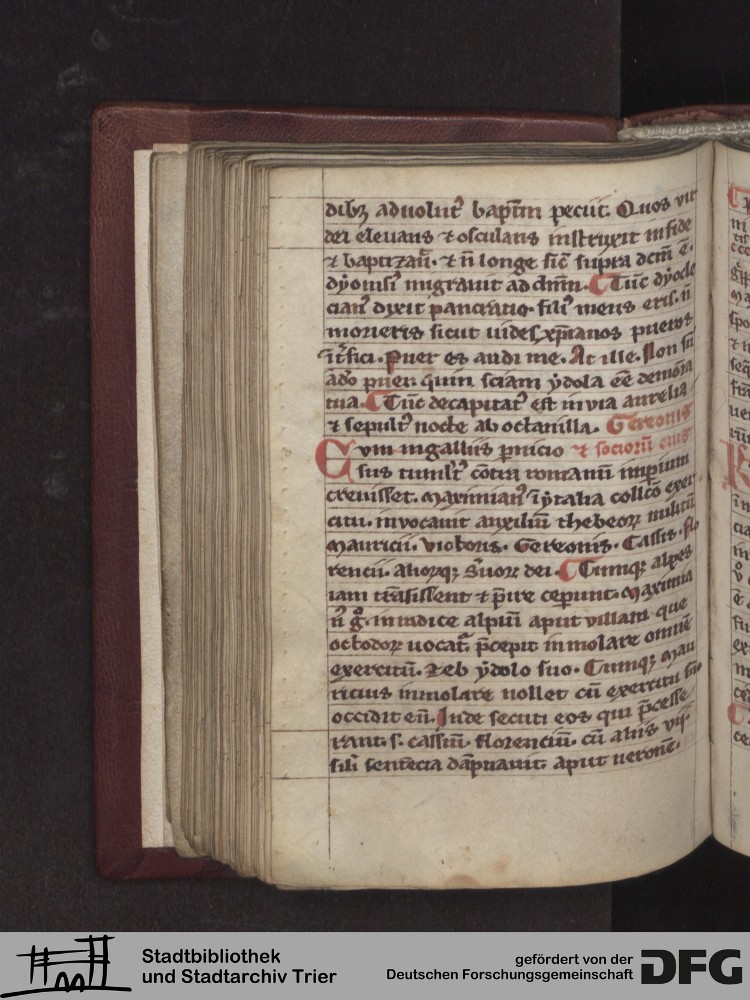 dibꝫ aduolut᷒ bapt̄m peciit. Quos vir
dei eleuans ⁊ osculans instruxit in fide
⁊ baptizau̅. ⁊ n̄ longe sic̄ supra dcm̄ ē.
dyonisi᷒ migrauit ad dn̄m. Tūc dyocle
cian᷒ dixit pancratio. fili᷒ meus eris. n̄
morieris sicut uides xp̄ianos pueros
īt̄fici. Puer es audi me. At ille. Non sū
ado puer. quin sciam ydola eē demōia
tua. Tūc decapitat᷒ est in via aurelia
⁊ sepult᷒ nocte ab octauilla. Gereonis
Cum in galliis p̄nicio ⁊ sociorū eius
sus tumlt᷒ cōtra romanū imp̄ium
creuisset. Maximian᷒ ī ytalia collc̄o exer
citu. inuocauit auxiliū thebeoꝝ militū
Mauricii. Victoris. Gereonis. Cassii. flo
rencii. alioꝝqꝫ s̄uoꝝ dei. Cumqꝫ alpes
iam trāsissent ⁊ p̄ire ceperunt. Maximia
n᷒ gͦ. in indice alpiū aput villam que
octodoꝝ uocat᷒. p̄cepit inmolare omnē
exercitū. ydolo suo. Cumqꝫ mau
ricius inmolare nollet cū exercitu suo
occidit eū. Inde secuti eos qui p̄cesse
rant. s. cassiū. florenciū. cū aliis vii.
sili sentecia dāpnauit aput ueronē.
Stadtbibliothek
und Stadtarchiv Trier
gefördert von der
Deutschen Forschungsgemeinschaft
DFG